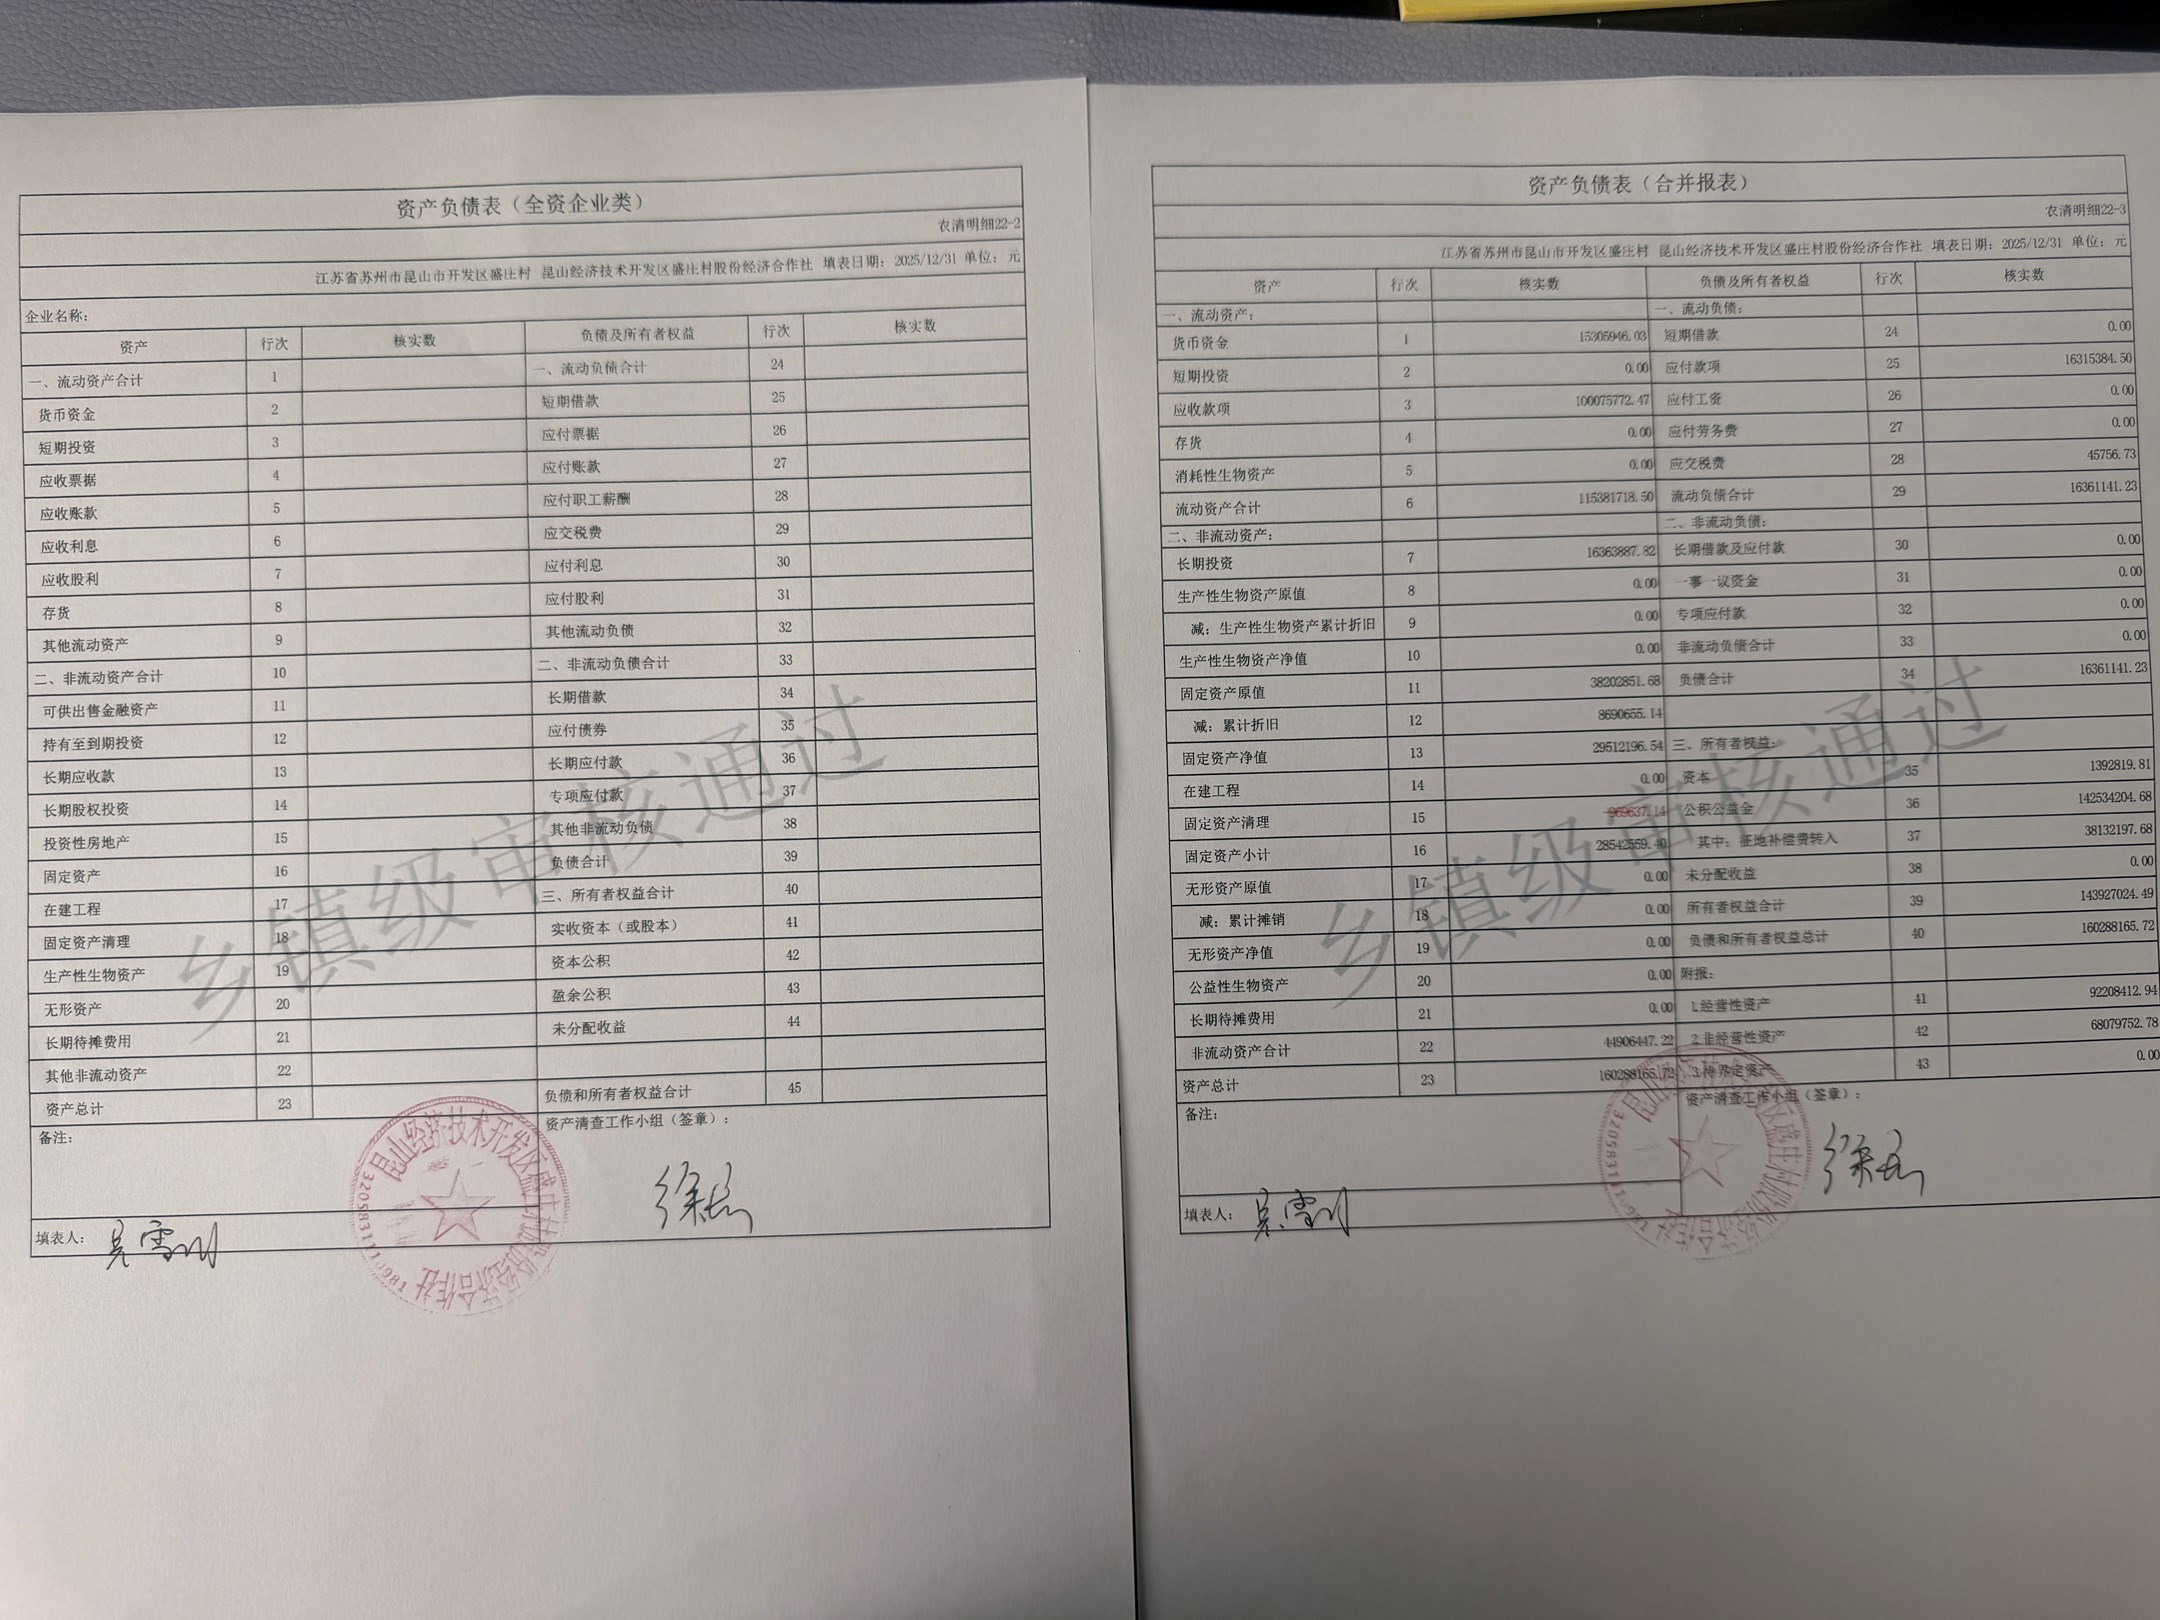 资产负债表（全资企业类）
农清明细22-2
江苏省苏州市昆山市开发区盛庄村 昆山经济技术开发区盛庄村股份经济合作社 填表日期：2025/12/31 单位：元
企业名称：
资产 行次 核实数 负债及所有者权益 行次 核实数
一、流动资产合计 1 一、流动负债合计 24
货币资金 2 短期借款 25
短期投资 3 应付票据 26
应收票据 4 应付账款 27
应收账款 5 应付职工薪酬 28
应收利息 6 应交税费 29
应收股利 7 应付利息 30
存货 8 应付股利 31
其他流动资产 9 其他流动负债 32
二、非流动资产合计 10 二、非流动负债合计 33
可供出售金融资产 11 长期借款 34
持有至到期投资 12 应付债券 35
长期应收款 13 长期应付款 36
长期股权投资 14 专项应付款 37
投资性房地产 15 其他非流动负债 38
固定资产 16 负债合计 39
在建工程 17 三、所有者权益合计 40
固定资产清理 18 实收资本（或股本） 41
生产性生物资产 19 资本公积 42
无形资产 20 盈余公积 43
长期待摊费用 21 未分配收益 44
其他非流动资产 22
资产总计 23 负债和所有者权益合计 45
备注： 资产清查工作小组（签章）：
填表人：
乡镇级审核通过
昆山经济技术开发区盛庄村股份经济合作社
资产负债表（合并报表）
农清明细22-3
江苏省苏州市昆山市开发区盛庄村 昆山经济技术开发区盛庄村股份经济合作社 填表日期：2025/12/31 单位：元
资产 行次 核实数 负债及所有者权益 行次 核实数
一、流动资产： 一、流动负债：
货币资金 1 15305946.03 短期借款 24 0.00
短期投资 2 0.00 应付款项 25 16315384.50
应收款项 3 100075772.47 应付工资 26 0.00
存货 4 0.00 应付劳务费 27 0.00
消耗性生物资产 5 0.00 应交税费 28 45756.73
流动资产合计 6 115381718.50 流动负债合计 29 16361141.23
二、非流动资产： 二、非流动负债：
长期投资 7 16363887.82 长期借款及应付款 30 0.00
生产性生物资产原值 8 0.00 一事一议资金 31 0.00
减：生产性生物资产累计折旧 9 0.00 专项应付款 32 0.00
生产性生物资产净值 10 0.00 非流动负债合计 33 0.00
固定资产原值 11 38202851.68 负债合计 34 16361141.23
减：累计折旧 12 8690655.14
固定资产净值 13 29512196.54 三、所有者权益：
在建工程 14 0.00 资本 35 1392819.81
固定资产清理 15 -969637.14 公积公益金 36 142534204.68
固定资产小计 16 28542559.40 其中：征地补偿费转入 37 38132197.68
无形资产原值 17 0.00 未分配收益 38 0.00
减：累计摊销 18 0.00 所有者权益合计 39 143927024.49
无形资产净值 19 0.00 负债和所有者权益总计 40 160288165.72
公益性生物资产 20 0.00 附报：
长期待摊费用 21 0.00 1.经营性资产 41 92208412.94
非流动资产合计 22 44906447.22 2.非经营性资产 42 68079752.78
资产总计 23 160288165.72 3.待界定资产 43 0.00
备注： 资产清查工作小组（签章）：
填表人：
乡镇级审核通过
昆山经济技术开发区盛庄村股份经济合作社